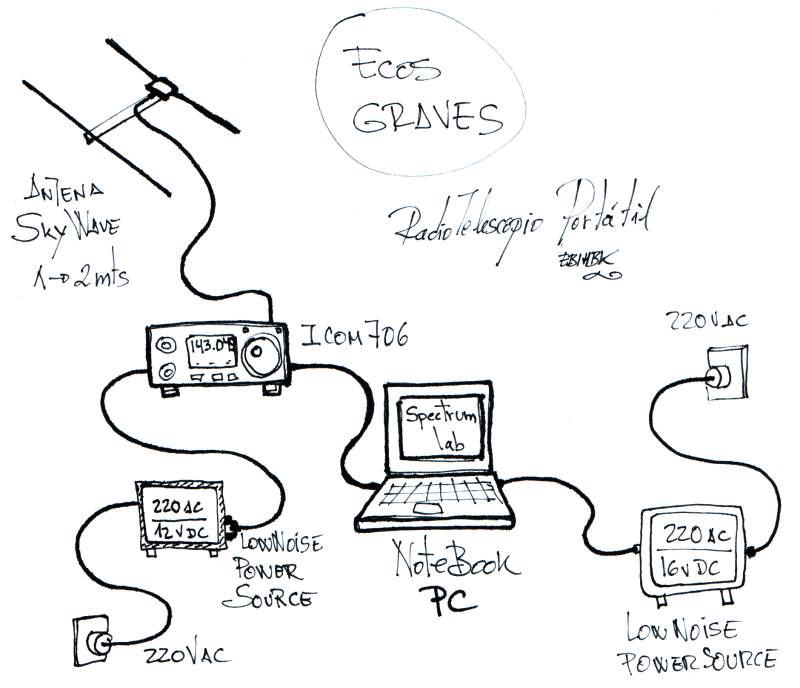 ECOS
GRAVES
RadioTelescopio Portátil
ANTENA
SkyWAVE
1→2mts
220VAC
143.04
ICOM706
Spectrum
lab
220AC
12VDC
LOWNOISE
POWER
SOURCE
NOTEBOOK
PC
220AC
16VDC
220VAC
LOWNOISE
POWERSOURCE